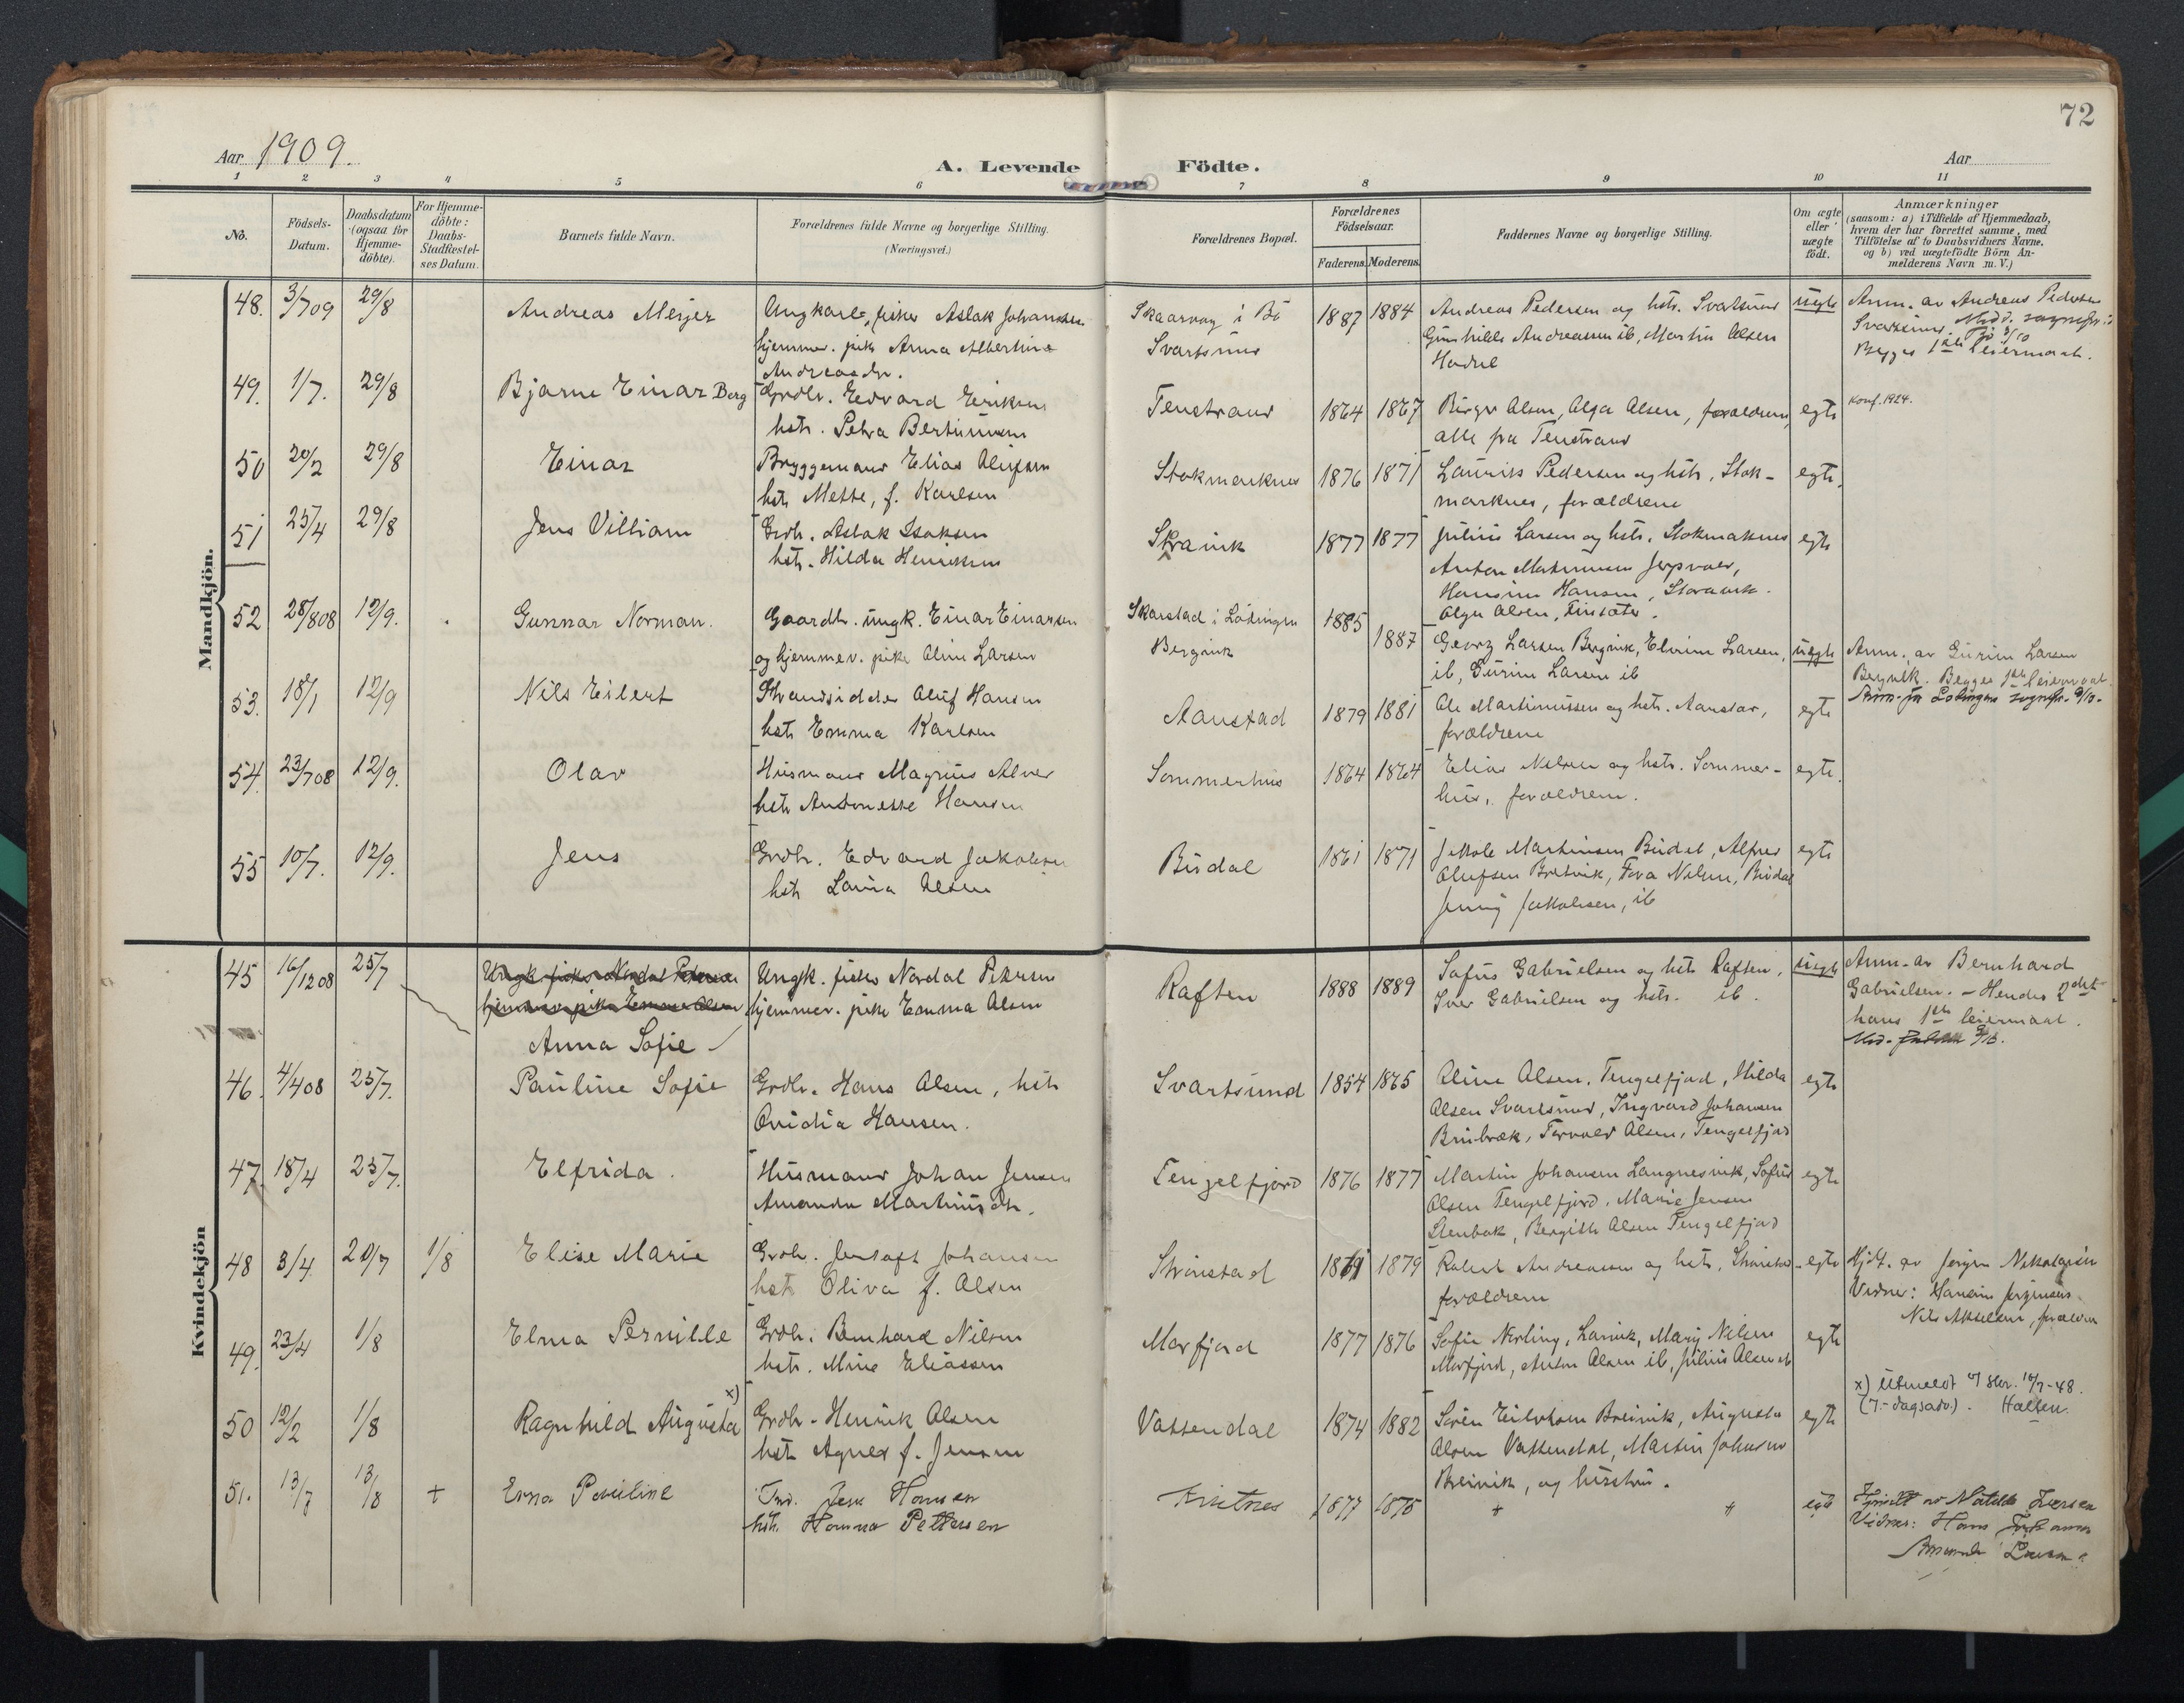 72
Aar 1909.
A. Levende Födte.
Aar
1 2 3 4 5 6 7 8 9 10 11
No.
Födsels-
Datum.
Daabsdatum
(ogsaa for
Hjemme-
döbte).
For Hjemme-
döbte:
Daabs-
Stadfæstel-
ses Datum.
Barnets fulde Navn.
Forældrenes fulde Navne og borgerlige Stilling.
(Næringsvei.)
Forældrenes Bopæl.
Forældrenes
Födselsaar.
Faderens. Moderens.
Faddernes Navne og borgerlige Stilling.
Om ægte
eller
uægte
födt.
Anmærkninger
(saasom: a) i Tilfælde af Hjemmedaab,
hvem der har forrettet samme, med
Tilföielse af to Daabsvidners Navne,
og b) ved uægtefödte Börn An-
melderens Navn m. V.)
Mandkjön.
48. 3/7 09 29/8 Andreas Meyer
Ungkarl, fisker Aslak Johansen
hjemmev. pike Anna Albertine
Andreasdr.
Skaarvag i Bö
Svartsund
1887 1884
Andreas Pedersen og hstr. Svartsund
Gunhilde Andreassen ib, Martin Olsen
Hadsel
uegte
Anm. av Andreas Pedersen
Svartsund.
Begges 1ste leiermaal.
49. 1/7. 29/8 Bjarne Einar Berg
Grdbr. Edvard Eriksen
hstr. Petra Bertinussen
Tenstrand
1864 1867
Birger Olsen, Olga Olsen, forældrene,
alle fra Tenstrand
egte
Konf. 1924.
50 20/2 29/8 Einar
Bryggemand Elias Olufsen
hstr Mette, f. Karlsen
Stokmarknes
1876 1871
Laurits Pedersen og hstr, Stok-
marknes, forældrene
egte.
51 25/4 29/8 Jens Villiam
Grdbr. Aslak Isaksen
hstr. Hilda Henriksen
1877 1877
Julius Larsen og hstr. Stokmaknes
Anton Martinussen
Hansine Hansen,
Olga Olsen,
egte
52 28/8 08 12/9. Gunnar Norman.
Gaardbr. ungk. Einar Einarsen
og hjemmev. pike Oline Larsen
Skarstad i Lödingen
Bergvik
1885
1887
Georg Larsen Bergvik, Elvine Larsen,
ib, Gurine Larsen ib
uegte
Anm. av Gurine Larsen
Bergvik. Begges 1ste leiermaal.
53. 18/1 12/9 Nils Eilert
Strandsidder Oluf Hansen
hstr Emma Karlsen
Aanstad
1879 1881
Ole Martinussen og hstr. Aanstad,
forældrene
egte
54. 23/7 08 12/9. Olav
Husmand Magnus Alver
hstr Antonette Hansen
Sommerhus
1864 1864
Elias Nilsen og hstr. Sommer-
hus, forældrene.
egte.
55 10/7. 12/9. Jens
Grdbr. Edvard Jakobsen
hstr Laura Olsen
Budal
1861 1871
Jakob Martinsen Budal, Alfred
Olufsen Breivik, Feva Nilsen, Budal
Jenny Jakobsen, ib
egte
Kvindekjön
45 16/12 08 25/7
Ungk. fisker Nordal Petersen
hjemmev. pike Emma Olsen
Anna Sofie
Ungk. fisker Nordal Petersen
hjemmev. pike Emma Olsen
Raften
1888 1889
Sofus Gabrielsen og hstr Raften,
Iver Gabrielsen og hstr. ib.
uegte
Anm. av Bernhard
Gabrielsen. - Hendes 2det
hans 1ste leiermaal.
46. 4/4 08 25/7. Pauline Sofie
Grdbr. Hans Olsen, hstr
Ovidia Hansen.
Svartsund
1854 1865
Oline Olsen, Tengelfjord, Hilda
Olsen Svartsund, Ingvard Johansen
Brubræk, Torvald Olsen, Tengelfjord
egte
47. 18/4 25/7. Elfrida.
Husmand Johan Jensen
Amanda Martinusdr.
Tengelfjord
1876 1877
Martin Johansen Langnesvik, Sofus
Olsen Tengelfjord, Marie Jensen
Stenbak, Bergith Olsen Tengelfjord
egte
48 3/4 20/7 1/8 Elise Marie
Grdbr. Jentoft Johansen
hstr Oliva f. Olsen
Strönstad
1879
Robert Andreassen og hstr, Strönstad
forældrene
egte
Hjdt. av Jörgen Nikolaisen
Vidner: Hansine Jörgensen
Nils Akselsen, forældre
49. 23/4 1/8 Elma Pernille
Grdbr. Bernhard Nilsen
hstr. Mina Eliassen
Morfjord
1877 1876
Sofie Nerling, Mary Nilsen
Morfjord, Anton Olsen ib, Julius Olsen ib
egte
50 12/2 1/8 Ragnhild Augusta x)
Grdbr. Henrik Olsen
hstr Agnes f. Jensen
Vattendal
1874 1882
Sören Eilertsen Breivik, Augusta
Olsen Vattendal, Martin Johansen
Breivik, og hustru.
egte
x) Utmeldt 14/7-48.
(7.-dagsadv.).
51. 13/7 13/8 + Erna Pauline
Jens Hansen
hstr. Hanna Pettersen
1877 1875
" "
egte
Hjmdt av Matilde Larsen
Vidner: Hans Johansen